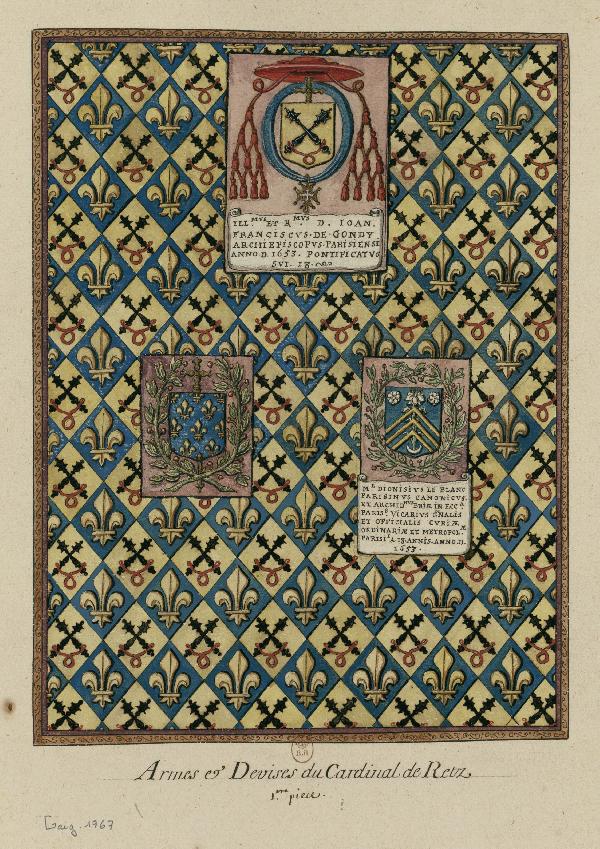 ILL.MVS ET R.MVS D. IOAN.
FRANCISCVS·DE·GONDY
ARCHIEPISCOPVS·PARISIENSI
ANNO D. 1653. PONTIFICATVS
SVI. 13.
M.R DIONISIVS LE BLANC
PARISINVS CANONICVS.
ET ARCHID.NVS BRIÆ IN ECC.A
PARIS.I VICARIVS G.NALIS
ET OFFICIALIS CVRIÆ
ORDINARIÆ ET METROPOL.Æ
PARISI. ANNIS. ANNO.D.
1653.
Armes et Devises du Cardinal de Retz
1.ere piece.
B.R
Gaig. 1767